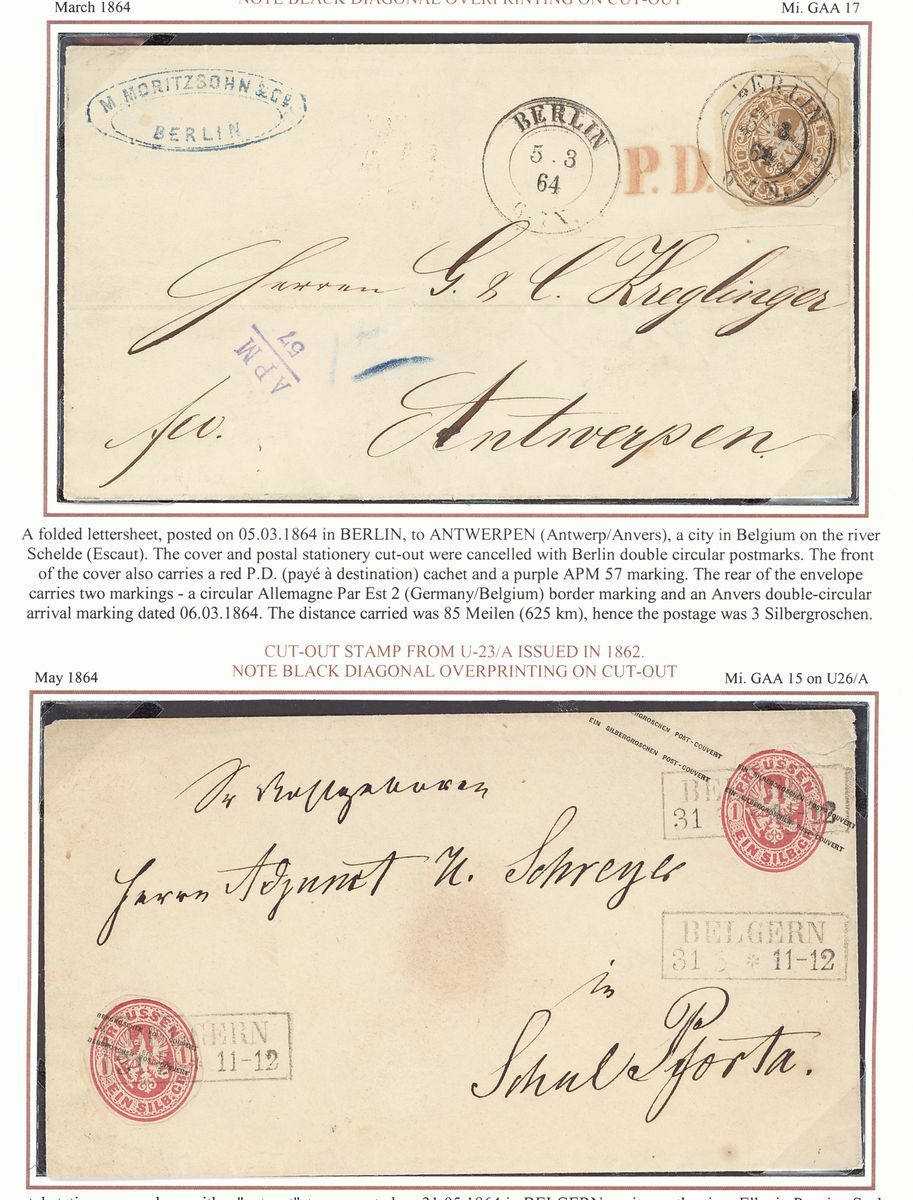 NOTE BLACK DIAGONAL OVERPRINTING ON CUT-OUT
March 1864
Mi. GAA 17
M. MORITZSOHN & Co.
BERLIN
BERLIN
5.3
64
P.D.
BERLIN
3
64
Herren G. & C. Kreglinger
APM
57
fco.
Antwerpen
A folded lettersheet, posted on 05.03.1864 in BERLIN, to ANTWERPEN (Antwerp/Anvers), a city in Belgium on the river
Schelde (Escaut). The cover and postal stationery cut-out were cancelled with Berlin double circular postmarks. The front
of the cover also carries a red P.D. (payé à destination) cachet and a purple APM 57 marking. The rear of the envelope
carries two markings - a circular Allemagne Par Est 2 (Germany/Belgium) border marking and an Anvers double-circular
arrival marking dated 06.03.1864. The distance carried was 85 Meilen (625 km), hence the postage was 3 Silbergroschen.
CUT-OUT STAMP FROM U-23/A ISSUED IN 1862.
NOTE BLACK DIAGONAL OVERPRINTING ON CUT-OUT
May 1864
Mi. GAA 15 on U26/A
SILBERGROSCHEN POST-COUVERT
EIN SILBERGROSCHEN POST-COUVERT
EIN SILBERGROSCHEN POST-COUVERT
EIN SILBERGROSCHEN POST-COUVERT
PREUSSEN
1 1
EIN SILB.GR.
31
Herrn Adjunct U. Schreyer
BELGERN
31 5 * 11-12
in
Schul Pforta.
PREUSSEN
1 1
EIN SILB.GR.
GERN
11-12